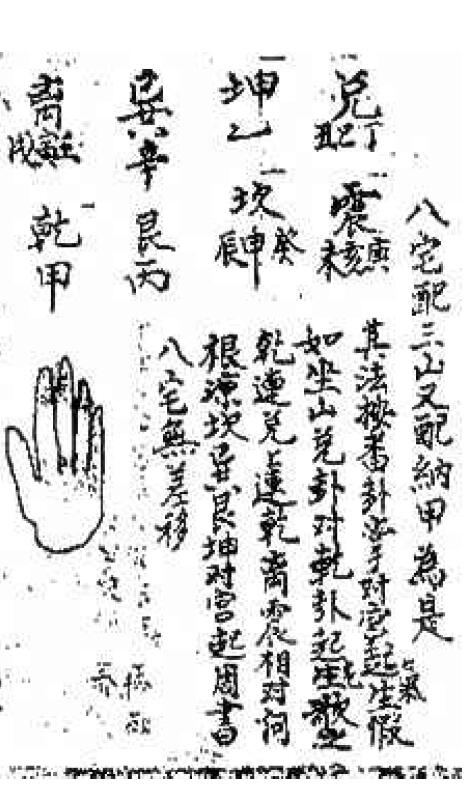 八宅配三山又配納甲為是
兌丁巳丑
震庚亥未
其法番卦手对宮起生氣假
如坐山兌卦对乾卦起生歌
坤乙
坎癸申辰
乾連兌連乾离震相对何
根源坎巽艮坤对宮起周書
巽辛
艮丙
八宅無差移
离壬寅戌
乾甲